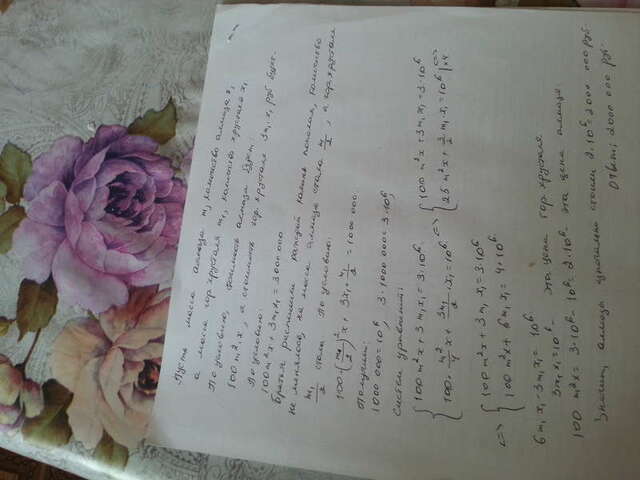 Пусть масса алмаза m, количество алмаза x,
а масса гор. хрусталя m₁, количество хрусталя x₁
По условию, стоимость алмаза будет:
100m²·x, а стоимость гор. хрусталя 3m₁·x₁ руб. будет.
По условию:
100m²x + 3m₁x₁ = 3000000
Братья распилили каждый камень пополам, количество
не менялось, но масса алмаза стала m/2, а гор. хрусталя
m₁/2 стала По условию:
100·(m/2)²x + 3x₁·m₁/2 = 1000000.
Получим:
1000000=10⁶, 3·1000000=3·10⁶,
Систем уравнений:
{100m²x + 3m₁x₁ = 3·10⁶ <=> {100m²x + 3m₁x₁ = 3·10⁶ <=>
{100·m²/4 x + 3m₁/2·x₁ = 10⁶ {25m²x + 3/2 m₁·x₁ = 10⁶ |·4
<=> {100m²x + 3m₁x₁ = 3·10⁶
{100m²x + 6m₁x₁ = 4·10⁶
6m₁x₁ - 3m₁x₁ = 10⁶
3m₁x₁ = 10⁶ - эта цена гор. хрусталя
100m²x = 3·10⁶ - 10⁶ = 2·10⁶ - эта цена алмаза.
Значит, алмазы изначально стоили 2·10⁶ = 2000 000 руб.
Ответ: 2000 000 руб